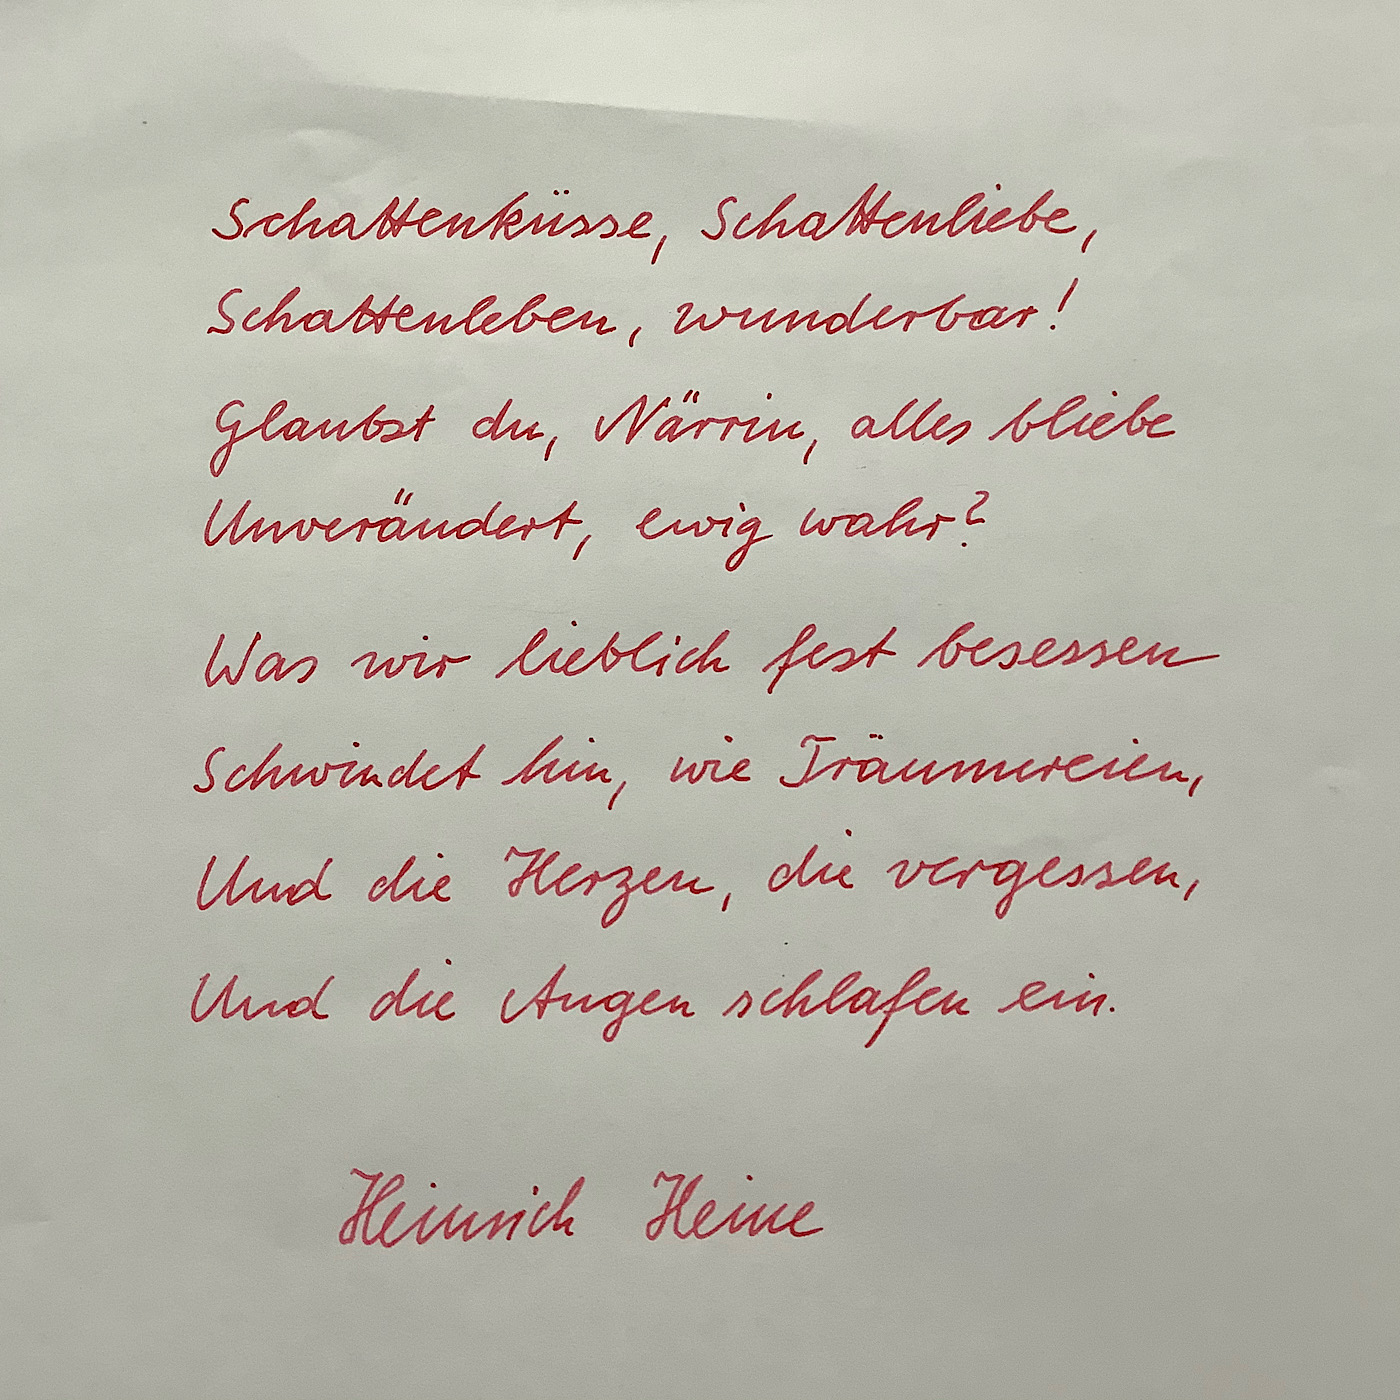 Schattenküsse, Schattenliebe,
Schattenleben, wunderbar!
Glaubst du, Närrin, alles bliebe
Unverändert, ewig wahr?
Was wir lieblich fest besessen
Schwindet hin, wie Träumereien,
Und die Herzen, die vergessen,
Und die Augen schlafen ein.
Heinrich Heine